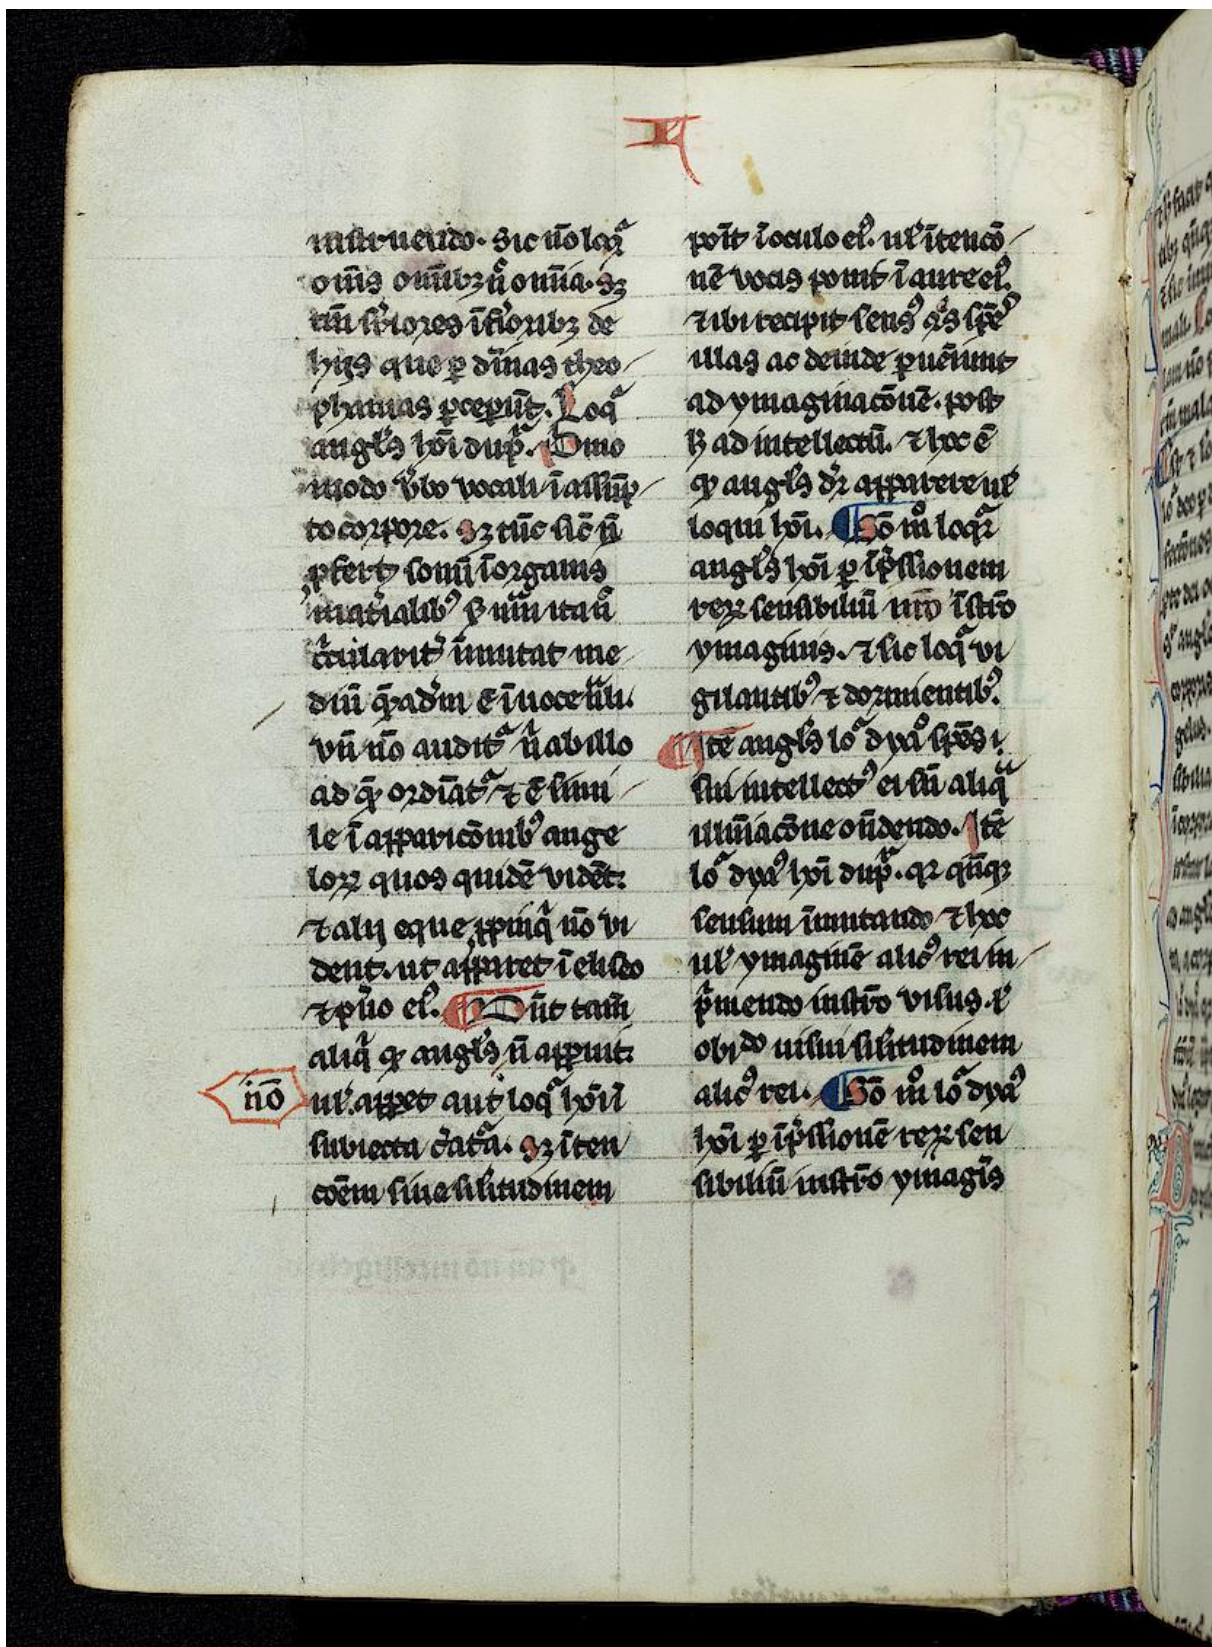 II
instruendo. Sic nō loqr̄
om̄s om̄ibȝ nͦ om̄ia. sȝ
tm̄ suꝑiores īfioribȝ de
hijs que ꝑ diīnas theo
phanias ꝑceperūt. Loqr̄
angl's hōi dupr̄. Pͥmo
modo v'bo vocali ī assūp
to corpore. sȝ tūc sic n̄
ꝓfert sonū ī organis
mat'ialibꝰ
mutat me
diū
vn̄ nō auditr̄ n̄ ab illo
ad q̄ ordīatr̄ ⁊ ē simi
le ī apparicōnibꝰ ange
loꝝ quos quidē vidēt.
⁊ alij eque ꝓpinq̄ nō vi
dent. ut apparet ī eliseo
⁊ pūo eiꝰ. Dn̄t tam̄
aliq̄ ꝙ angl's n̄ apparuit.
nō
ul' appet aut loqr̄ hōi n̄
subiecta c̄atr̄a. sȝ īten
coēm siue silitudinem
poīt ī oculo eiꝰ. ul' ītencō
nē vocis ponit ī aure eiꝰ.
⁊ ibi recipit sensꝰ spē
illas ac deinde ꝑueniunt
ad ymaginacōnē. post
h' ad intellectū. ⁊ hoc ē
ꝙ angl's dr̄ apparere ul'
loqui hōi. Sc̄o mͦ loqr̄
angl's hōi ꝑ īp̄ssionem
reꝝ sensibiliū īstrō
ymaginis. ⁊ sic loqr̄ vi
gilantibꝰ ⁊ dormientibꝰ.
Itē angl's lor̄ dyaͦ
sui intellectꝰ ei
illuīacōne on̄dendo. Itē
lor̄ dyaꝰ hōi dupr̄. qr̄ qn̄qȝ
sensum īmutando ⁊ hoc
ul' ymaginē alicꝰ rei in
p̄mendo instrō visus. l'
obido uisui silitudinem
alicꝰ rei. Sc̄o mͦ lor̄ dyaꝰ
hōi ꝑ īp̄ssionē reꝝ sen
sibiliū instrō ymagīs